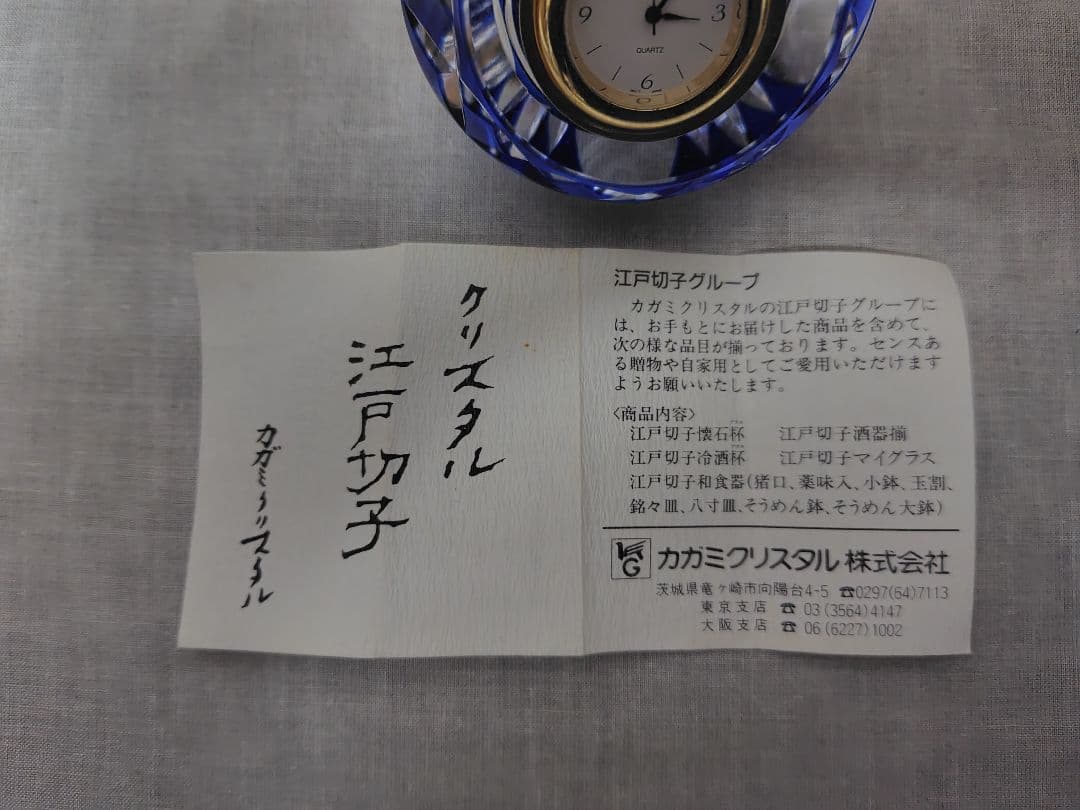 9
3
QUARTZ
6
クリスタル
江戸切子
カガミクリスタル
江戸切子グループ
カガミクリスタルの江戸切子グループに
は、お手もとにお届けした商品を含めて、
次の様な品目が揃っております。センスあ
る贈物や自家用としてご愛用いただけます
ようお願いいたします。
〈商品内容〉
江戸切子懐石杯 江戸切子酒器揃
江戸切子冷酒杯 江戸切子マイグラス
江戸切子和食器(猪口、薬味入、小鉢、玉割、
銘々皿、八寸皿、そうめん鉢、そうめん大鉢)
KG カガミクリスタル 株式会社
茨城県竜ヶ崎市向陽台4-5 ☎0297(64)7113
東京支店 ☎ 03(3564)4147
大阪支店 ☎ 06(6227)1002